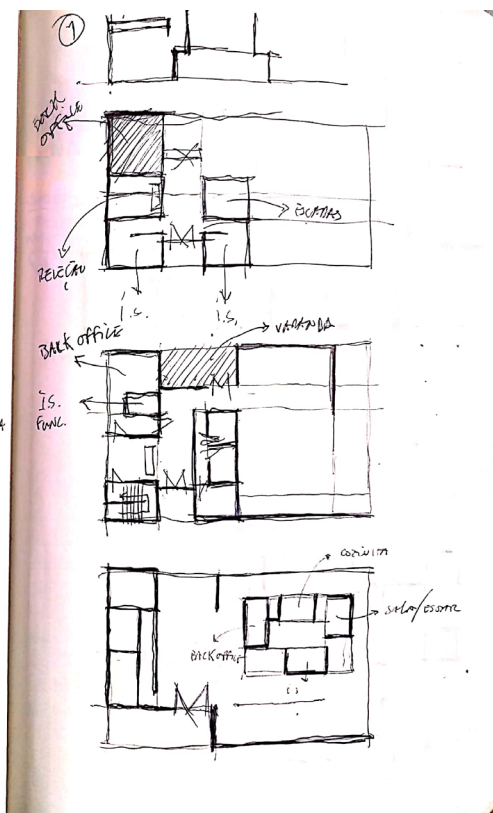 1
BACK
OFFICE
ESCADAS
I.S.
I.S.
BACK OFFICE
VARANDA
I.S.
FUNC.
COZINHA
SALA/ESTAR
BACK OFFICE
I.S.